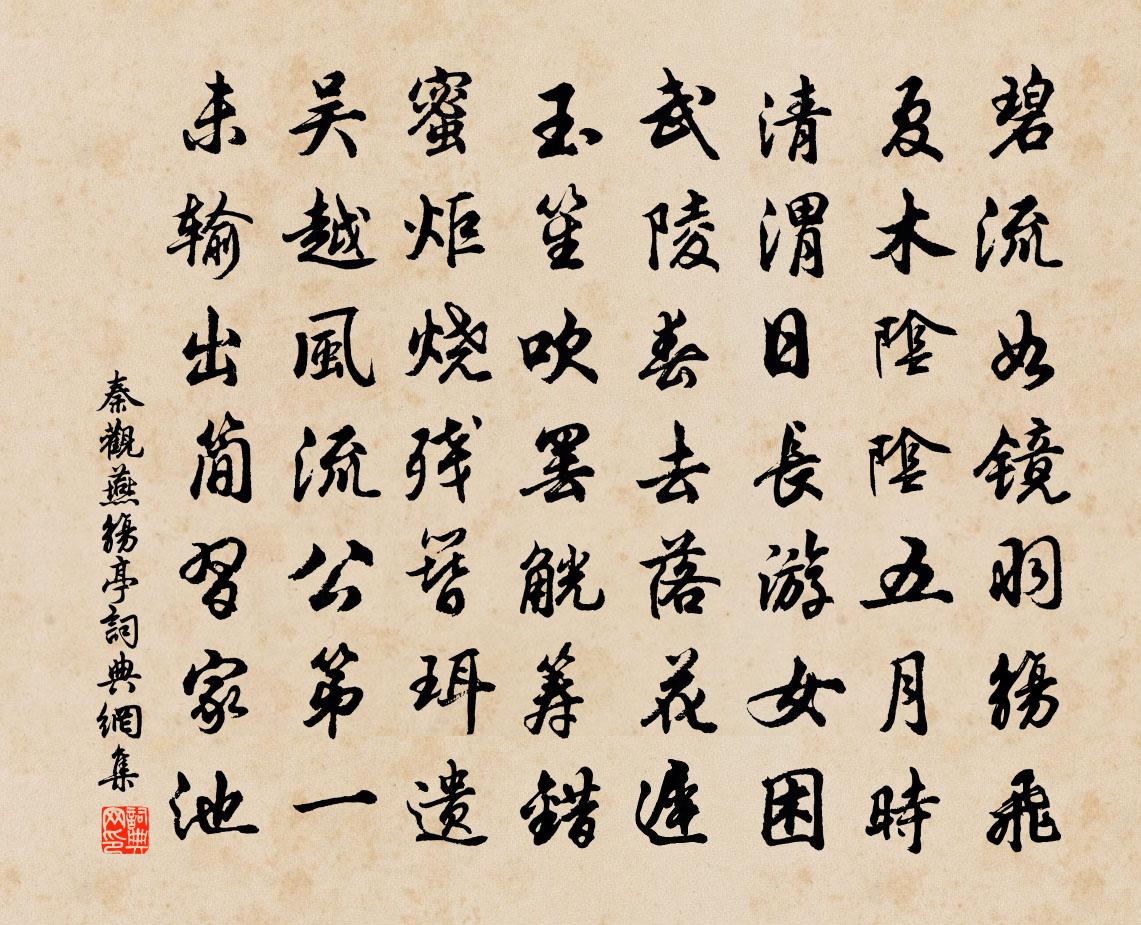 碧流如鏡羽觴飛
夏木陰陰五月時
清渭日長游女困
武陵春去落花遲
玉笙吹罢觥筹錯
蜜炬烧残簪珥遗
吴越風流公第一
未输出简習家池
秦觀燕觴亭詞典網集
詞典网印